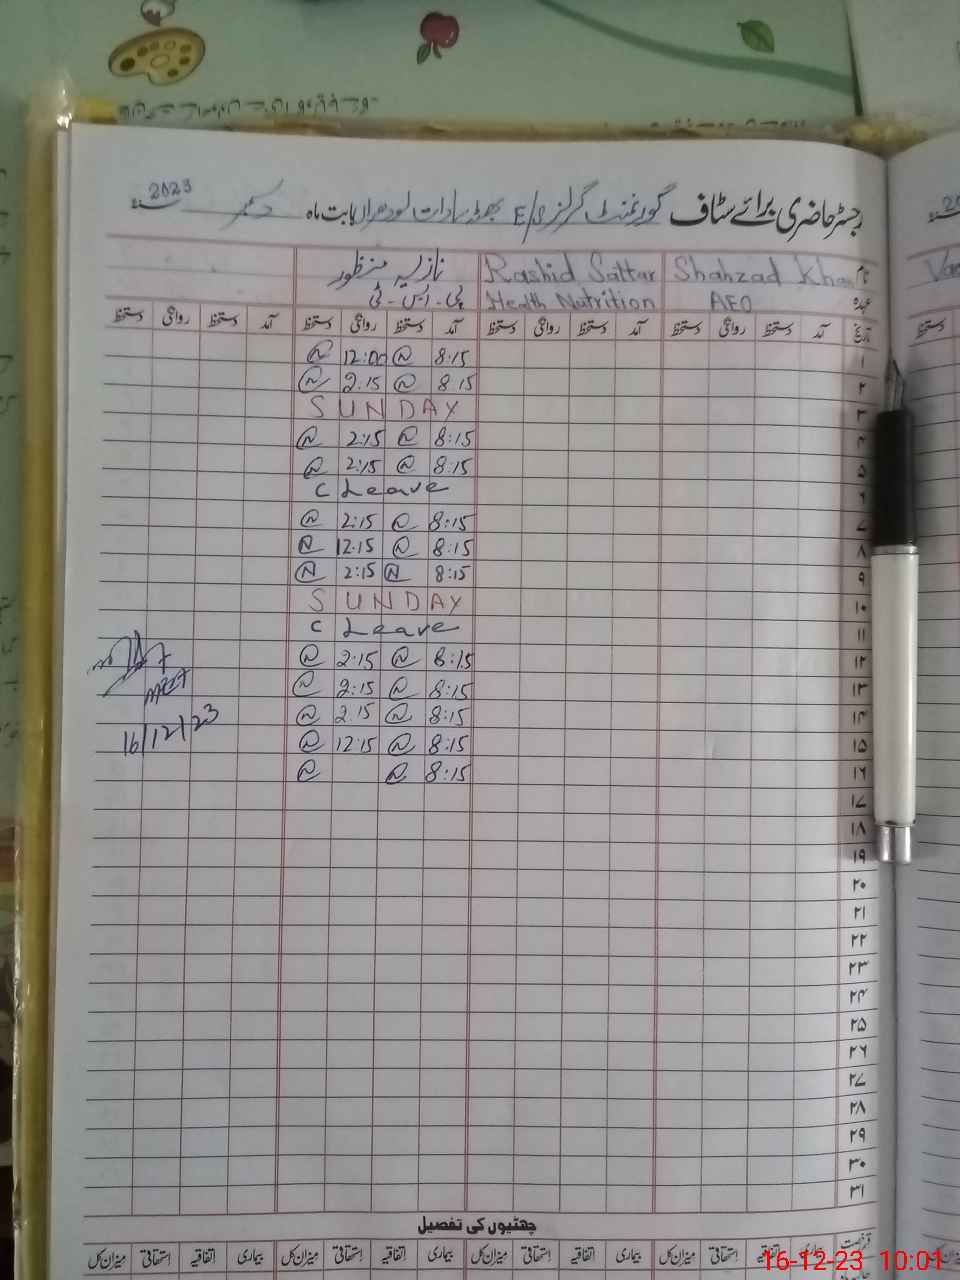 رجسٹر حاضری برائے سٹاف گورنمنٹ گرلز E/S بابت ماہ دسمبر 2023
نام Shahzad Khan Rashid Sattar نازیہ منظور
عہدہ AEO Health Nutrition پی-ایس-ٹی
تاریخ آمد دستخط روانگی دستخط آمد دستخط روانگی دستخط آمد دستخط روانگی دستخط آمد دستخط روانگی دستخط
۱ 8:15 12:00
۲ 8:15 2:15
۳ SUNDAY
۴ 8:15 2:15
۵ 8:15 2:15
۶ C Leave
۷ 8:15 2:15
۸ 8:15 12:15
۹ 8:15 2:15
۱۰ SUNDAY
۱۱ C Leave
۱۲ 8:15 2:15
۱۳ 8:15 2:15
۱۴ 8:15 2:15
۱۵ 8:15 12:15
۱۶ 8:15
16/12/23
۱۷
۱۸
۱۹
۲۰
۲۱
۲۲
۲۳
۲۴
۲۵
۲۶
۲۷
۲۸
۲۹
۳۰
۳۱
چھٹیوں کی تفصیل
بیماری اتفاقیہ استحقاقی میزان کل بیماری اتفاقیہ استحقاقی میزان کل بیماری اتفاقیہ استحقاقی میزان کل
16-12-23 10:01